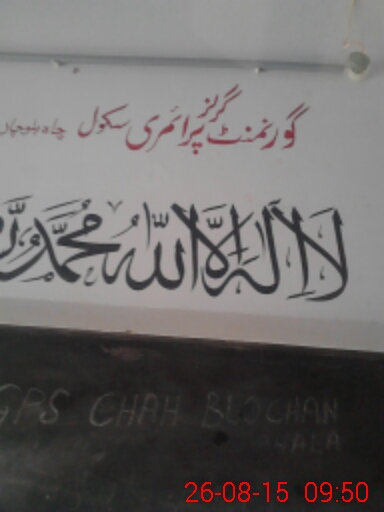 گورنمنٹ گرلز پرائمری سکول چاہ بلوچاں
لَا اِلٰهَ اِلَّا اللّٰهُ مُحَمَّدٌ
GPS CHAH BLOCHAN
WALA
26-08-15 09:50